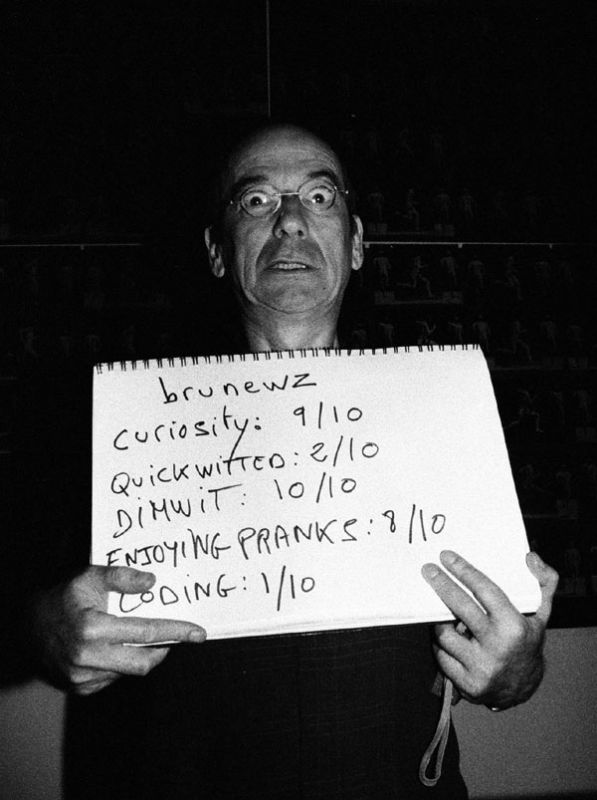 brunewz
curiosity: 9/10
QUICKWITTED: 2/10
DIMWIT: 10/10
ENJOYING PRANKS: 8/10
CODING: 1/10